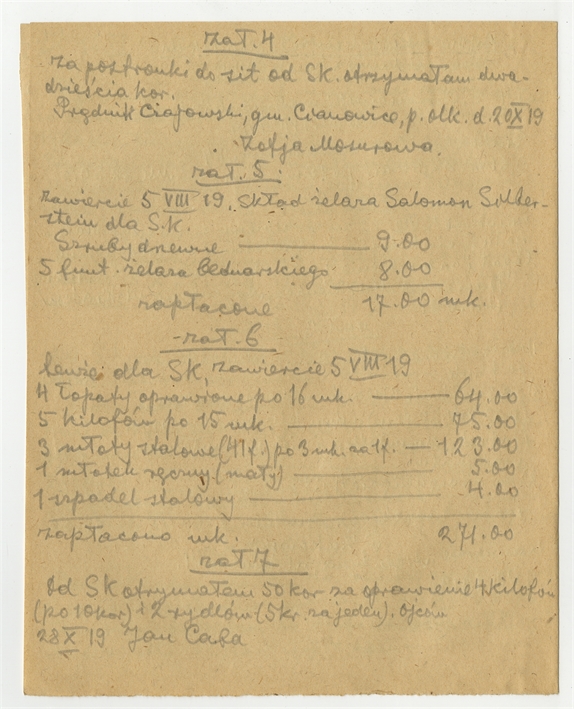 zał. 4
Za postronki do sit od SK. otrzymałam dwa-
dzieścia kor.
Prądnik Czajowski, gm. Cianowice, p. olk. d. 20 X 19
Zofja Mosurowa.
zał. 5
Zawiercie 5 VIII 19. Skład żelaza Salomon Silber-
stein dla S.K.
Szruby drzewne 9.00
5 funt. żelaza bednarskiego 8.00
zapłacone 17.00 mk.
zał. 6
dla SK, Zawiercie 5 VIII 19
4 łopaty oprawione po 16 mk. 64.00
5 kilofów po 15 mk. 75.00
3 młoty stalowe (41 f.) po 3 mk. za 1 f. 123.00
1 młotek ręczny (mały) 5.00
1 szpadel stalowy 4.00
zapłacono mk. 271.00
zał 7
Od SK otrzymałem 50 kor za oprawienie 4 kilofów
(po 10 kor) i 2 rydlów (5 kr. za jeden). Ojców
28 X 19 Jan Caba